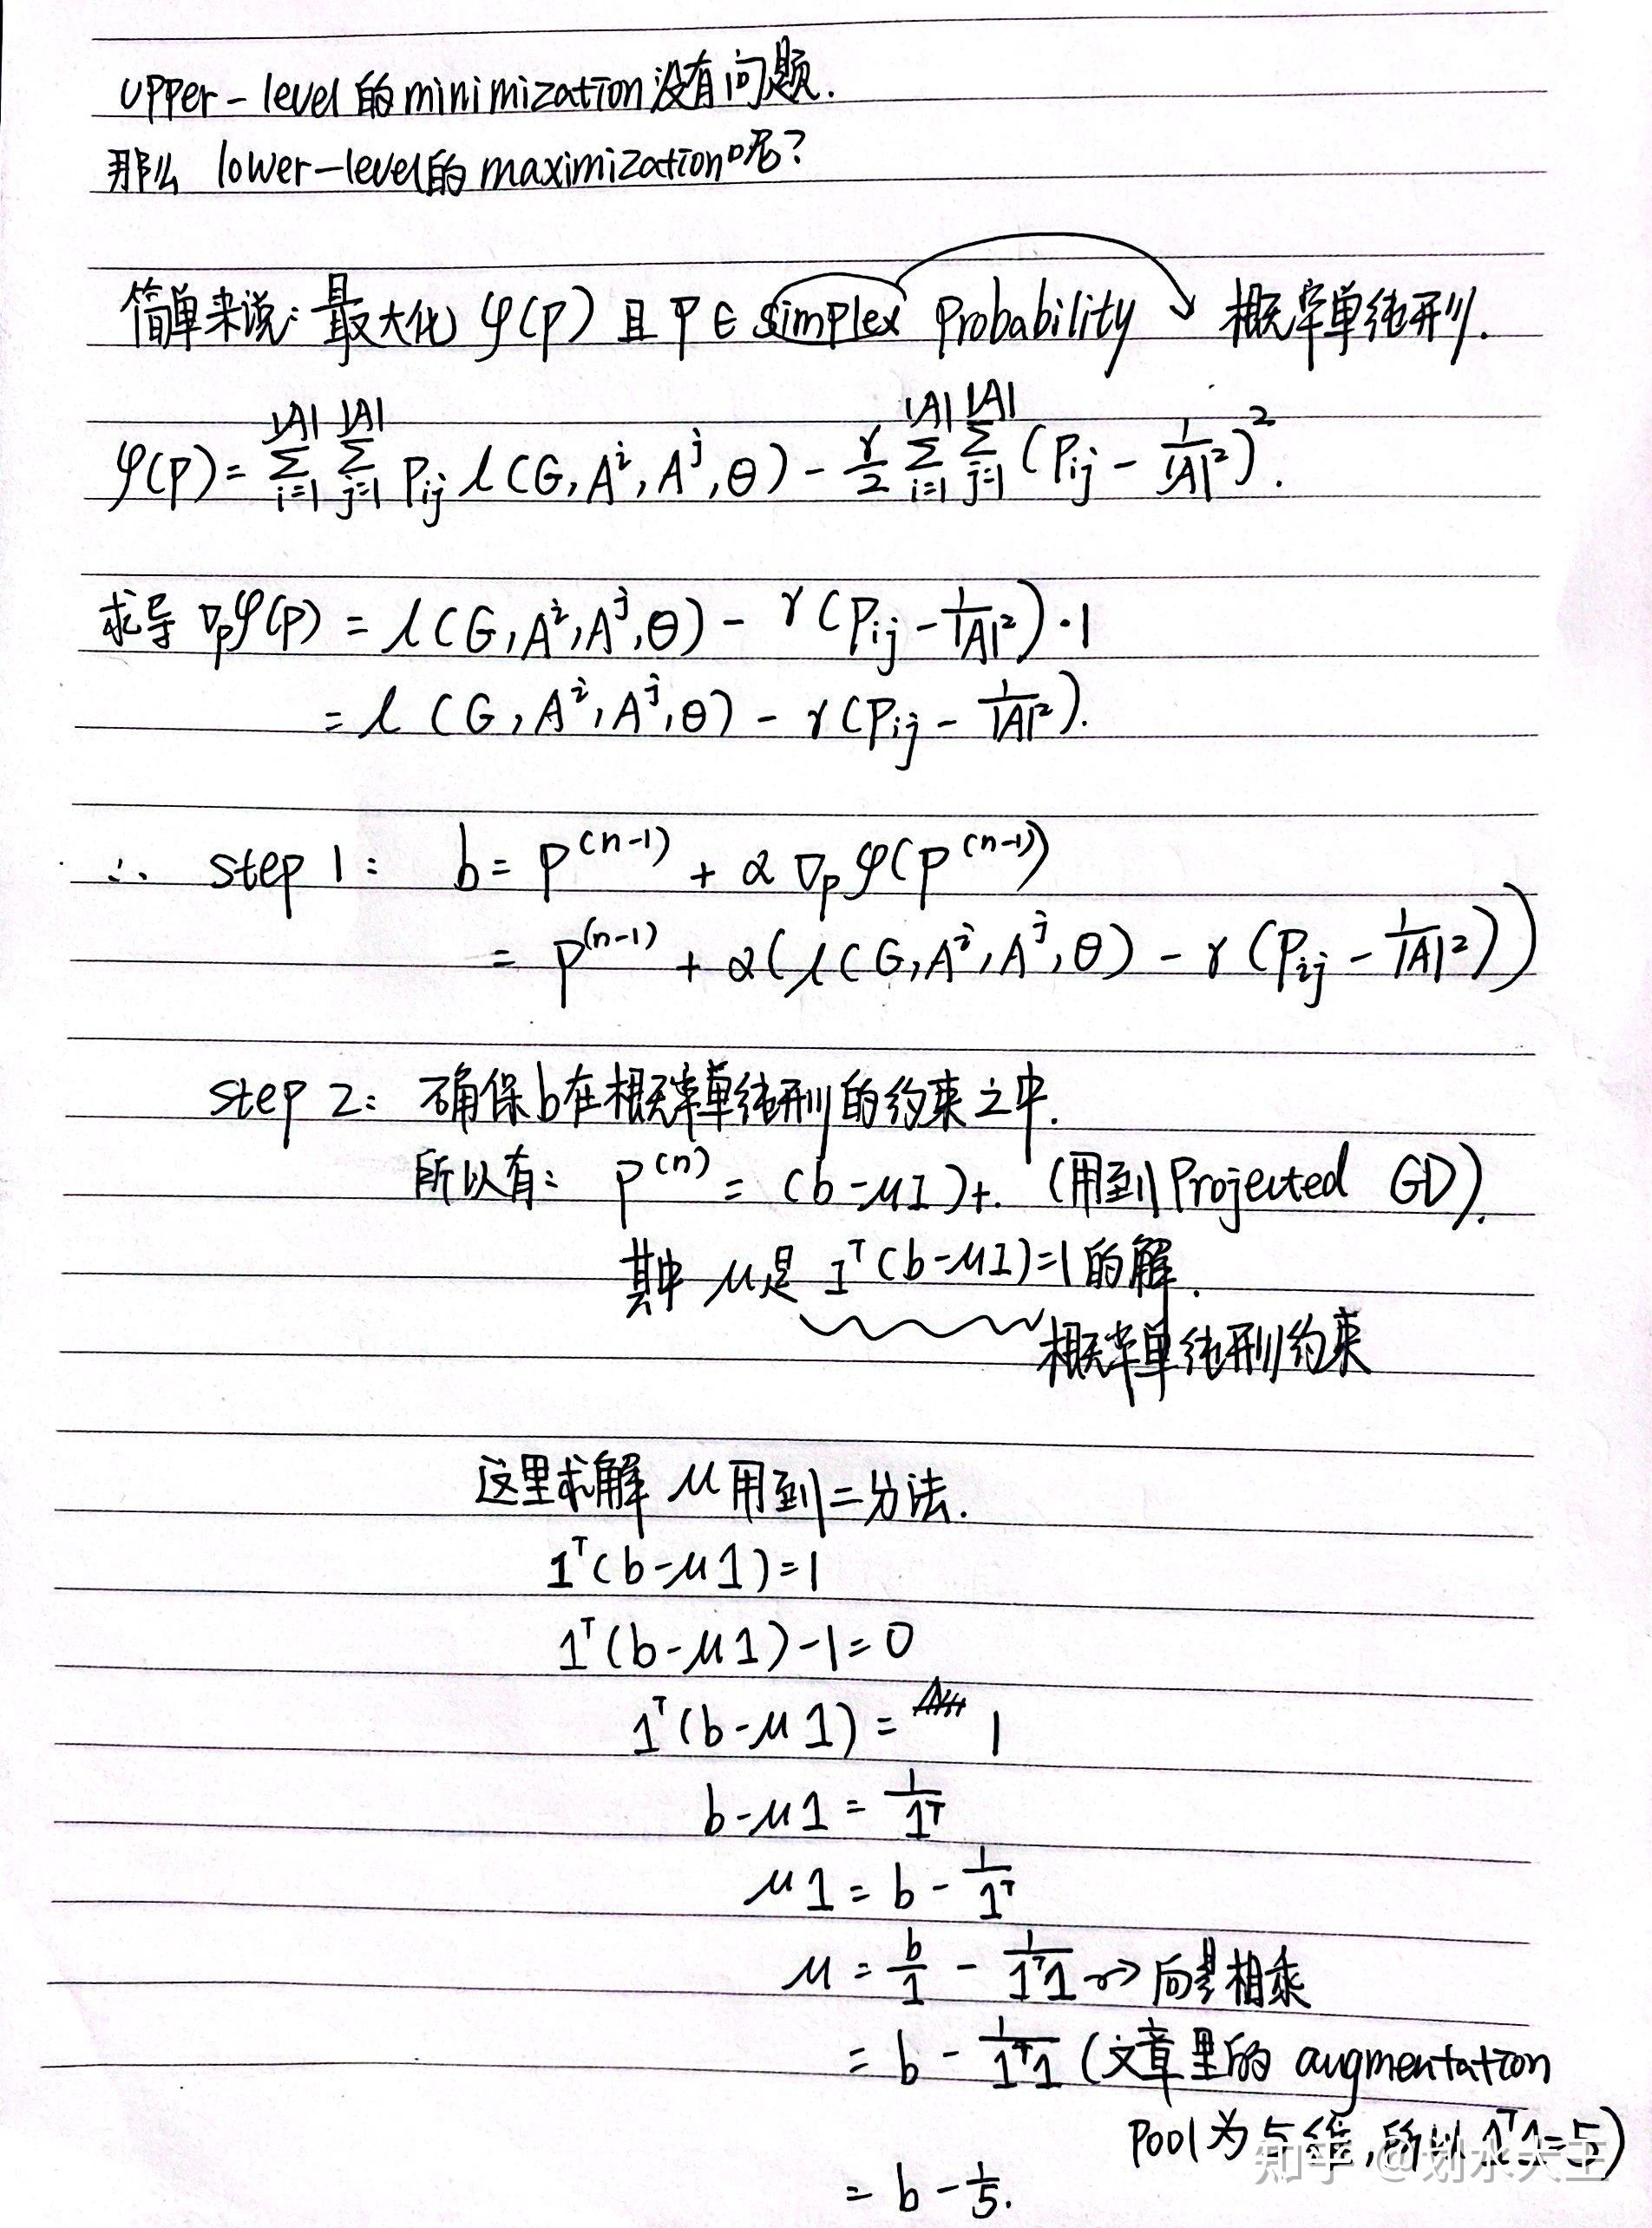 upper-level的minimization没有问题.
那么 lower-level的maximization呢?
简单来说: 最大化 φ(p) 且 P ∈ simplex Probability → 概率单纯形.
φ(p) = Σ_{i=1}^{|A|} Σ_{j=1}^{|A|} P_{ij} l(G, A^i, A^j, θ) - γ/2 Σ_{i=1}^{|A|} Σ_{j=1}^{|A|} (P_{ij} - 1/|A|²)².
求导 ∇_p φ(p) = l(G, A^i, A^j, θ) - γ(P_{ij} - 1/|A|²)·1
= l(G, A^i, A^j, θ) - γ(P_{ij} - 1/|A|²).
∴ step 1: b = P^{(n-1)} + α ∇_p φ(P^{(n-1)})
= P^{(n-1)} + α(l(G, A^i, A^j, θ) - γ(P_{ij} - 1/|A|²))
step 2: 确保b在概率单纯形的约束之中.
所以有: P^{(n)} = (b-μ1)+. (用到Projected GD).
其中 μ是 1^T(b-μ1)=1的解.
概率单纯形约束
这里求解 μ用到二分法.
1^T(b-μ1)=1
1^T(b-μ1)-1=0
1^T(b-μ1)= 1
b-μ1 = 1/1^T
μ1 = b - 1/1^T
μ = b/1 - 1/1^T1 → 向量相乘
= b - 1/1^T1 (文章里的 augmentation
Pool为5维,所以1^T1=5)
= b - 1/5.
知乎 @划水大王